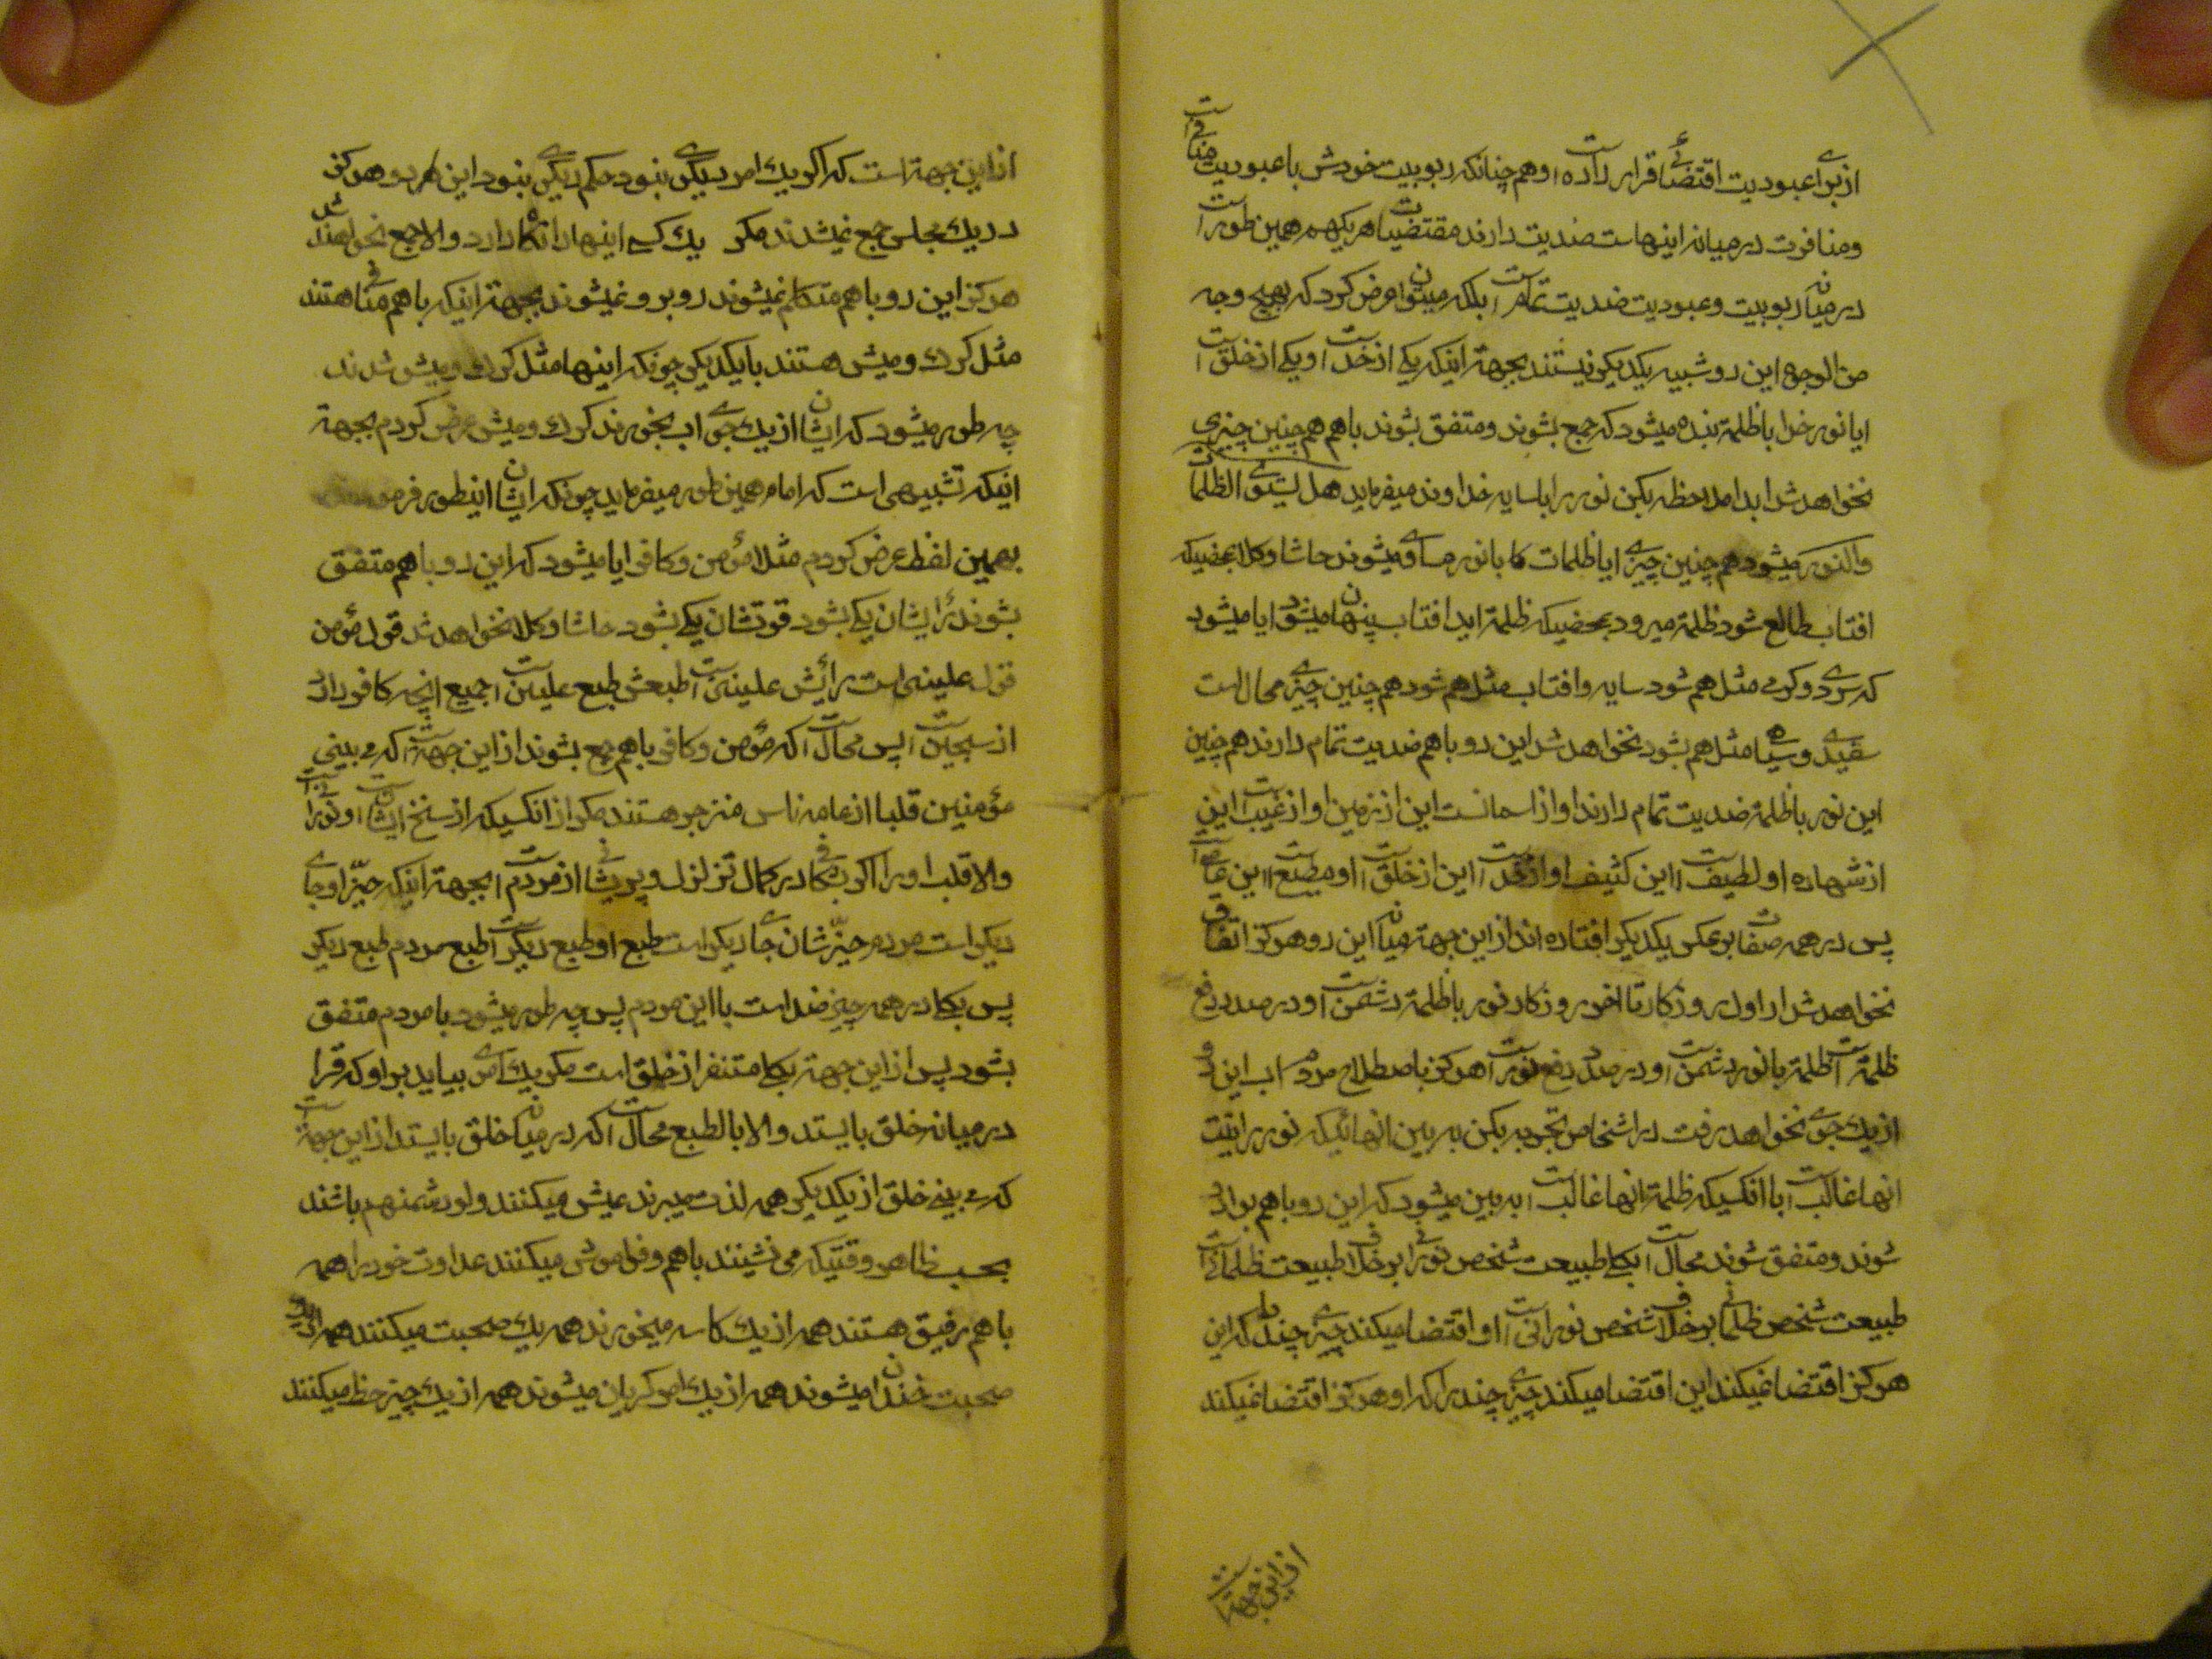 از برای عبودیت اقتضائی قرار داده است و هم چنانکه ربوبیت خودش با عبودیت منافیست
و منافرت در میانه اینهاست ضدیت دارند مقتضیات هر یکهم همین طور است
در میانه ربوبیت و عبودیت ضدیت تمام است بلکه میتوان عرض کرد که بهیچ وجه
من الوجوه این دو شبیه یکدیگر نیستند بجهة اینکه یکی از خداست و یکی از خلق است
ایا نور خدا با ظلمة بنده میشود که جمع بشوند و متفق بشوند با هم هم چنین چیزی
نخواهد شد ابدا ملاحظه بکن نور را با سایه خداوند میفرماید هل یستوی الظلمات
والنور میشود هم چنین چیزی ایا ظلمات کا با نور مساوی میشوند حاشا و کلا بمحضیکه
افتاب طالع شود ظلمة میرود بمحضیکه ظلمة اید افتاب پنهان میشود ایا میشود
که سردی و گرمی مثل هم شود سایه و افتاب مثل هم شود هم چنین چیزی محال است
سفیدی و سیاه مثل هم بشود نخواهد شد این دو با هم ضدیت تمام دارند هم چنین
این نور با ظلمة ضدیت تمام دارند او از اسمانست این از زمین او از غیب است این
از شهاده او لطیف است این کثیف او از خداست این از خلق است او مطیع است این عاصی است
پس در همه صفات بر عکس یکدیگر افتاده اند از این جهة میانه این دو هرگز اتفاق
نخواهد شد از اول روزگار تا اخر روزگار نور با ظلمة دشمن است و در صدد دفع
ظلمة است ظلمة با نور دشمن است و در صدد دفع نور است هرگز باصطلاح مردم اب این دو
از یک جوی نخواهد رفت در اشخاص تجربه بکن به بین انهائیکه نورانیت
انها غالب است با انکسیکه ظلمة انها غالب است به بین میشود که این دو با هم برادر
شوند و متفق شوند محال است بکلی طبیعت شخص نورانی بر خلاف طبیعت ظلمانی است
طبیعت شخص ظلمانی بر خلاف شخص نورانی است او اقتضا میکند چیزی چند را که این
هرگز اقتضا نمیکند این اقتضا میکند چیزی چند را که او هرگز اقتضا نمیکند
از این جهة است
از این جهة است که اگر یک امر دیگری نبود حکم دیگری نبود این هر دو هرگز
در یک مجلس جمع نمیشدند مگر یک کسی اینها را نگاه دارد والا جمع نخواهند شد
هرگز این دو با هم متکلم نمیشوند روبرو نمیشوند بجهة اینکه با هم منافی هستند
مثل گرک و میش هستند با یکدیگر چونکه اینها مثل گرک و میش شدند
چه طور میشود که ایشان از یک جوی اب بخورند گرک و میش عرض کردم بجهة
اینکه تشبیهی است که امام همین طور میفرماید چونکه ایشان اینطور
بهمین لفظ عرض کردم مثلا مؤمن و کافر ایا میشود که این دو با هم متفق
بشوند رأیشان یکی بشود قوتشان یکی بشود حاشا و کلا نخواهد شد قول مؤمن
قول علینی است رأیش علینی است طبعش طبع علیین است جمیع انچه کافر دارد
از سجین است پس محال است که مؤمن و کافر با هم جمع بشوند از این جهة است که می بینی
مؤمنین قلبا از عامه ناس منزجر هستند مگر از انکسیکه از سنخ ایشان است و نورانیست
والا قلب او را اگر بشکافی در کمال تزلزل و پریشانی از مردم است بجهة اینکه حیّز او جای
دیگر است مردم حیّزشان جای دیگر است طبع او طبع دیگر است طبع مردم طبع دیگر
پس بکلی در همه چیز ضد است با این مردم پس چه طور میشود با مردم متفق
بشود پس از این جهة بکلی متنفر از خلق است مگر یک امری بیاید بر او که قرا
در میانه خلق بایستد والا بالطبع محال است که در میانه خلق بایستد از این جهة است
که می بینی خلق از یکدیگر همه لذت میبرند عیش میکنند ولو دشمنهم باشند
بحسب ظاهر وقتیکه می نشینند با هم و فراموش میکنند عداوت خود را همه
با هم رفیق هستند همه از یک کاسه میخورند همه یک صحبت میکنند همه از یک
صحبت خندان میشوند همه از یک امر گریان میشوند همه از یک چیز حظ میکنند